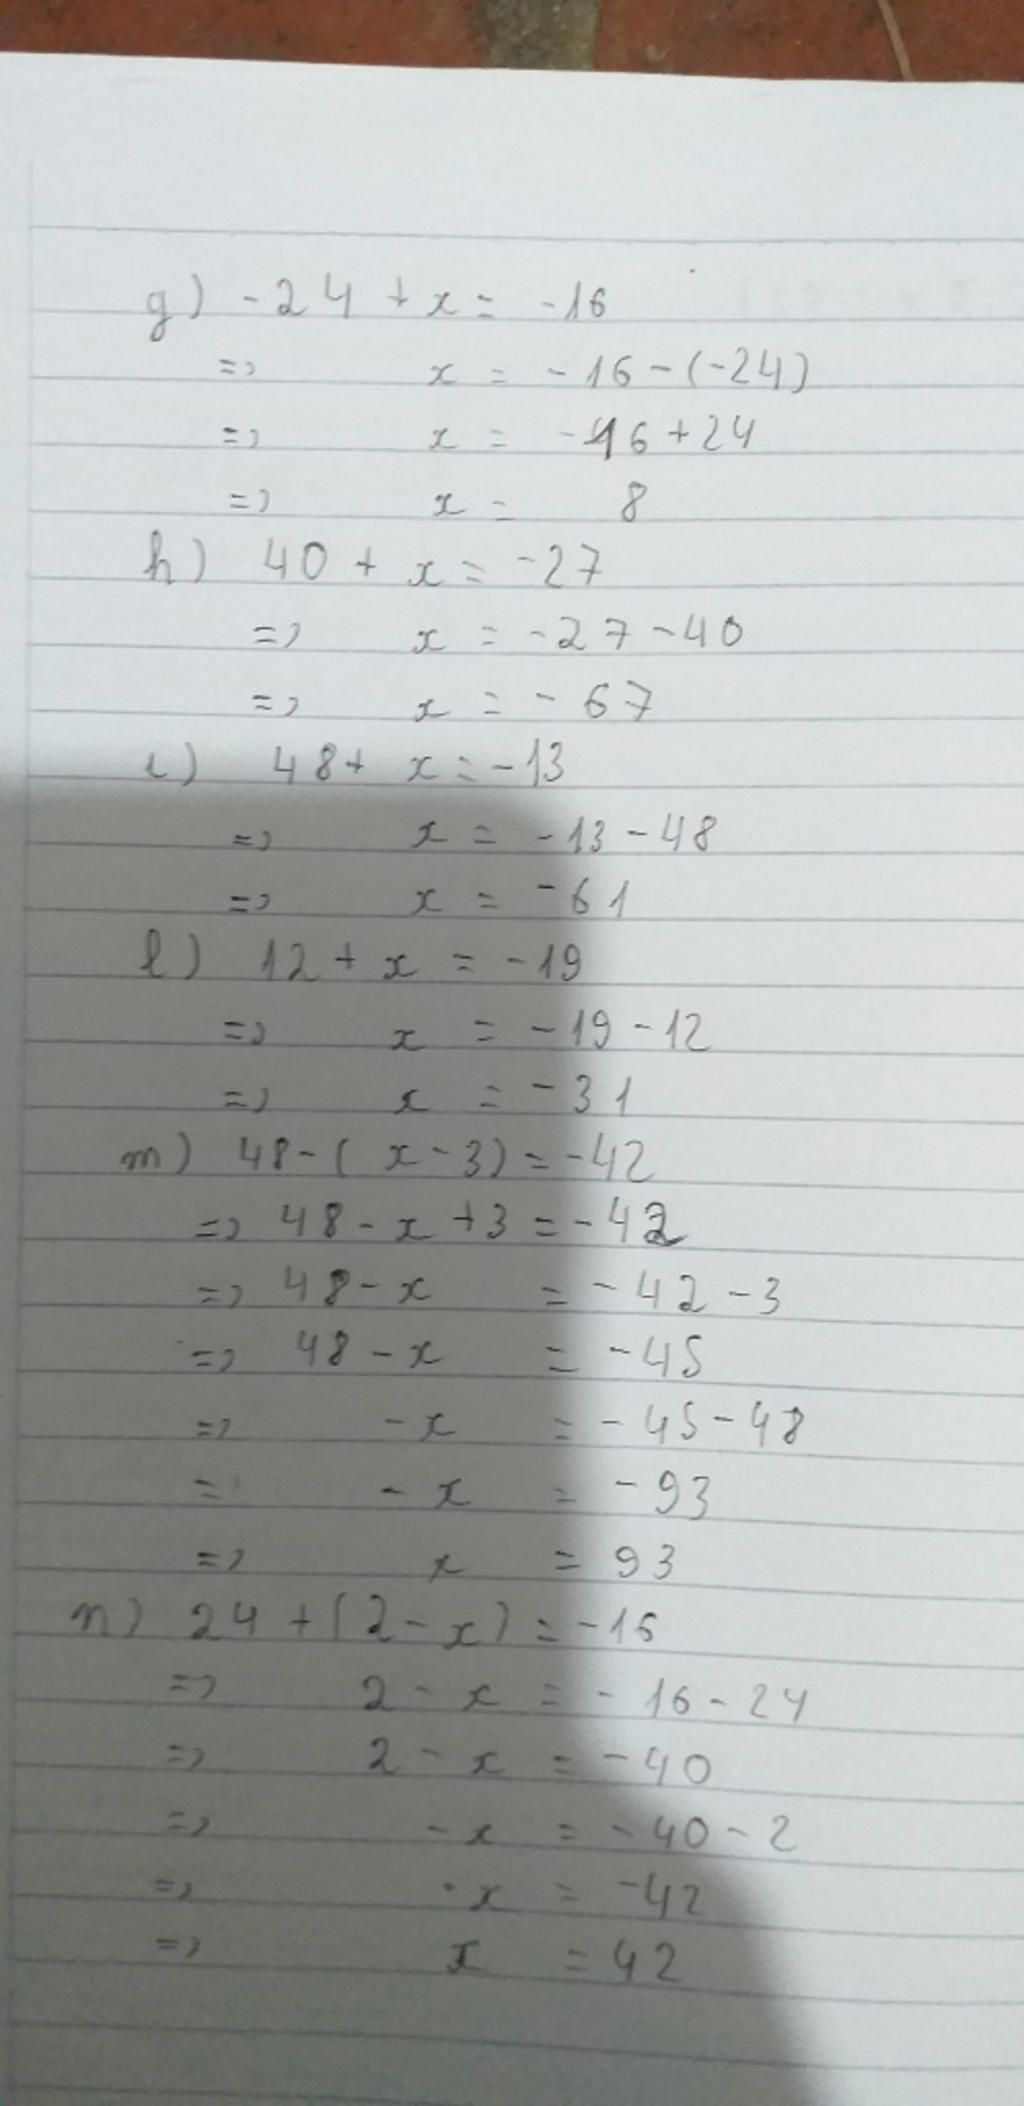 g) -24 + x = -16
=> x = -16-(-24)
=> x = -16+24
=> x = 8
h) 40 + x = -27
=> x = -27-40
=> x = -67
i) 48+ x = -13
=> x = -13-48
=> x = -61
l) 12 + x = -19
=> x = -19-12
=> x = -31
m) 48-( x - 3) = -42
=> 48 - x +3 = -42
=> 48 - x = -42-3
=> 48 - x = -45
=> -x = -45-48
= -x = -93
=> x = 93
n) 24 +(2-x) = -16
=> 2 - x = -16-24
=> 2 - x = -40
=> -x = -40-2
=> -x = -42
=> x = 42